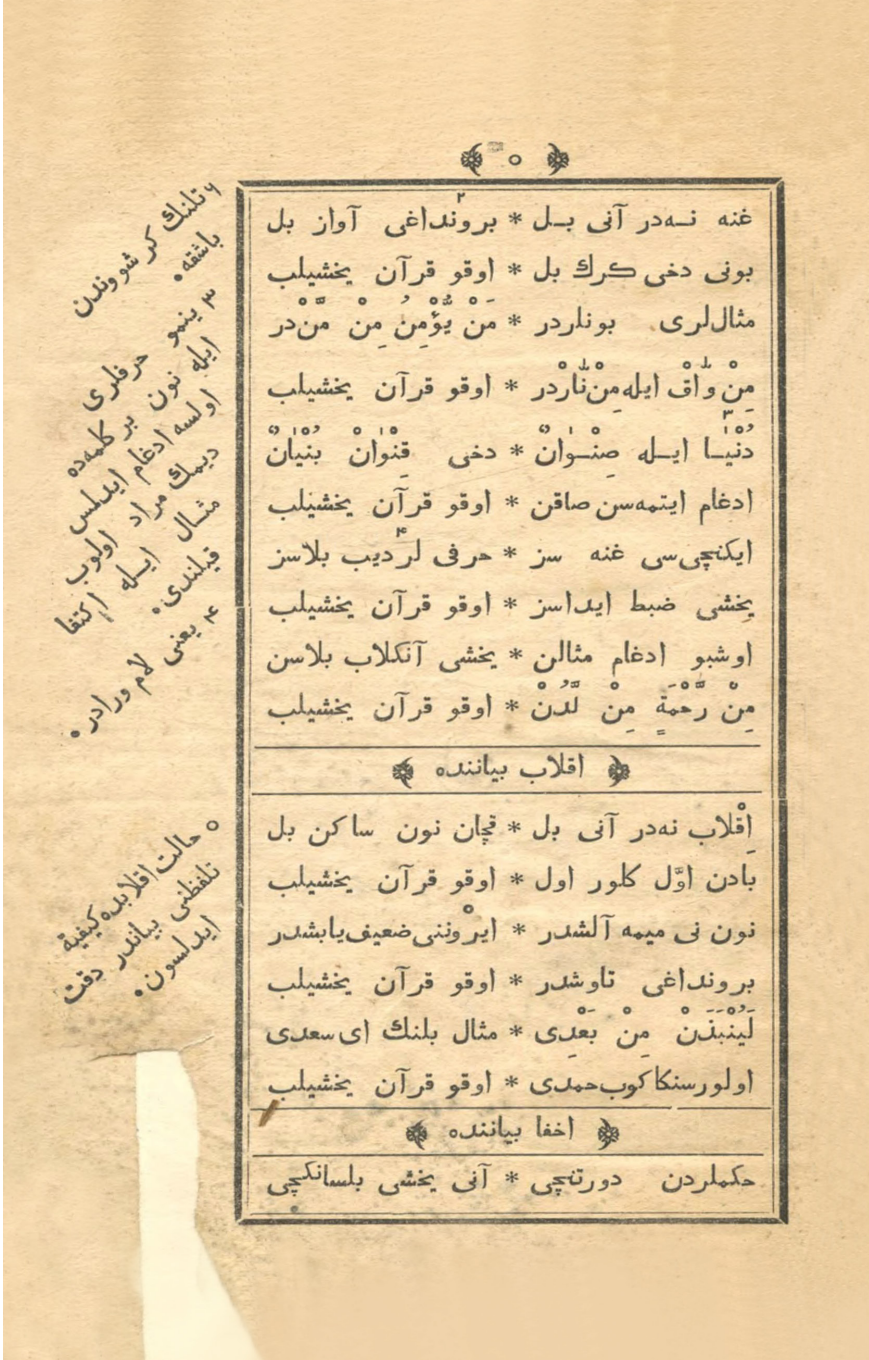 ﴿ ٥ ﴾
غنه نـه‌در آنی بـل * بروننداغی٢ آواز بل
بونی دخی كرك بل * اوقو قرآن يخشيلب
مثال‌لری بونلردر * مَنْ يُّؤْمِنُ مِنْ مَّنْ‌در
مِنْ وَّاقٍ ايله مِنْ نَّارْدر * اوقو قرآن يخشيلب
دُنْيٰـا٣ ايـله صِنْـوٰانٌ * دخی قِنْوٰانْ بُنْيٰانٌ
ادغام ايتمه‌سن صاقن * اوقو قرآن يخشيلب
ايكنچی‌سی غنه سز * حرفی لر٤ ديب بلاسز
يخشی ضبط ايداسز * اوقو قرآن يخشيلب
اوشبو ادغام مثالن * يخشی آنكلاب بلاسن
مِنْ رَّحْمَةٍ مِنْ لَّدُنْ * اوقو قرآن يخشيلب
﴿ اقلاب بياننده ﴾
اِقْلاب نه‌در آنی بل * قچان نون ساكن بل
بادن اوَّل كلور اول * اوقو قرآن يخشيلب
نون نی ميمه آلشدر * ايروننی٥ ضعيف يابشدر
بروننداغی تاوشدر * اوقو قرآن يخشيلب
لَيُنْبَذَنْ مِنْ بَعْدِی * مثال بلنك ای سعدی
اولور سنكا كوب حمدی * اوقو قرآن يخشيلب
﴿ اخفا بياننده ﴾
حكملردن دورتنچی * آنی يخشی بلسانكچی
٢ تلنك كرشووندن
باشقه٠
٣ ينمو حرفلری
ايله نون بر كلمه‌ده
اولسه ادغام ايدلس
ديمك مراد اولوب
مثـال ايـله اكتفا
قيلندی٠
٤ يعنی لام ورادر٠
٥ حالت اقلابده كيفية
تلفظنی بياندر دقت
ايدلسون٠